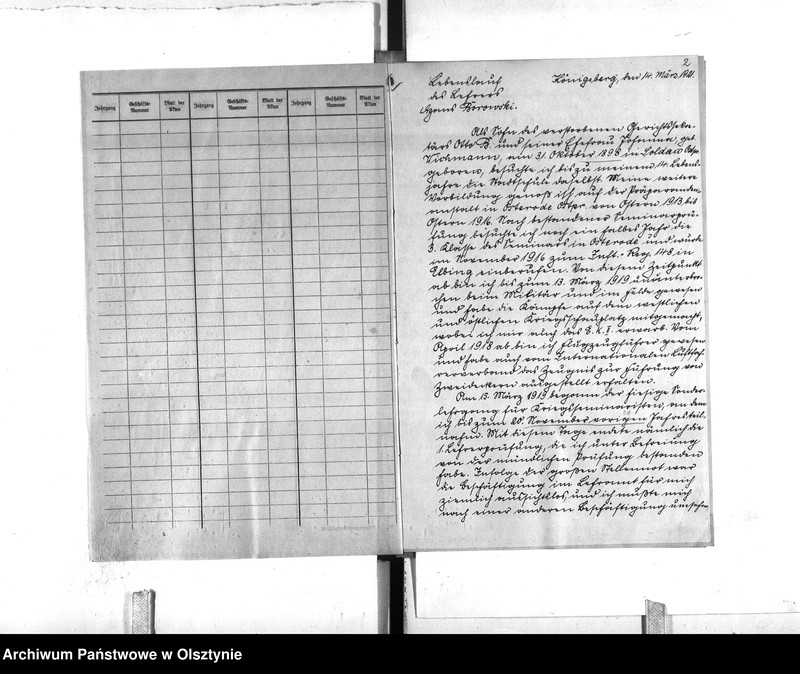 Jahrgang Geschäfts-Nummer Blatt der Akten Jahrgang Geschäfts-Nummer Blatt der Akten Jahrgang Geschäfts-Nummer Blatt der Akten
2
Königsberg, den 14. März
Lebenslauf
des Lehrers
Hans Borowski.
Als Sohn des verstorbenen Gerichtssekre-
tärs Otto B. und seiner Ehefrau Johanna, geb.
am 31. Oktober 1898 in Soldau Ostpr.
geboren, besuchte ich bis zu meinem 14. Lebens-
jahre die Stadtschule daselbst. Meine weitere
Vorbildung genoß ich auf der Präparanden-
anstalt in Osterode Ostpr. von Ostern 1913 bis
Ostern 1916. Nach bestandener Seminarprü-
fung besuchte ich noch ein halbes Jahr die
3. Klasse des Seminars in Osterode und wurde
im November 1916 zum Inft.-Reg. 148 in
Elbing einberufen. Von diesem Zeitpunkt
ab bin ich bis zum 13. März 1919 ununterbro-
chen beim Militär und im Felde gewesen
und habe die Kämpfe auf dem westlichen
und östlichen Kriegsschauplatz mitgemacht,
wobei ich mir auch das E. K. II. erwarb. Vom
April 1918 ab bin ich Flugzeugführer gewesen
und habe auch vom Internationalen Luftfah-
rerverband das Zeugnis zur Führung von
Zweideckern ausgestellt erhalten.
Am 15. März 1919 begann der hiesige Sonder-
lehrgang für Kriegsseminaristen, an dem
ich bis zum 20. November vorigen Jahres teil-
nahm. Mit diesem Tage endete nämlich die
1. Lehrerprüfung, die ich unter Befreiung
von der mündlichen Prüfung bestanden
habe. Infolge der großen Stellennot war
die Beschäftigung im Lehramt für mich
ziemlich aussichtslos und ich mußte mich
nach einer anderen Beschäftigung umsehen
Archiwum Państwowe w Olsztynie